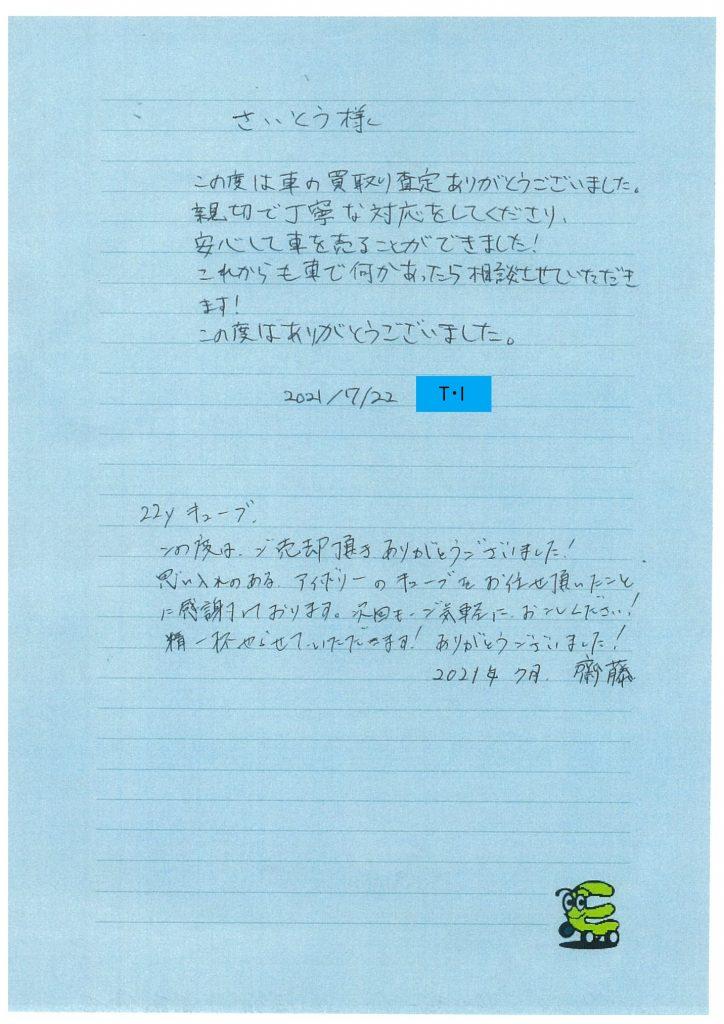 さいとう様
この度は車の買取り査定ありがとうございました。
親切で丁寧な対応をしてくださり、
安心して車を売ることができました!
これからも車で何かあったら相談させていただき
ます!
この度はありがとうございました。
2021/7/22 T・I
22y キューブ.
この度は、ご売却頂きありがとうございました!
思い入れのある アイボリーのキューブを お任せ頂いたこと
に感謝しております。次回も、ご気軽に、お越しください!
精一杯やらせていただきます! ありがとうございました!
2021年 7月. 齋藤